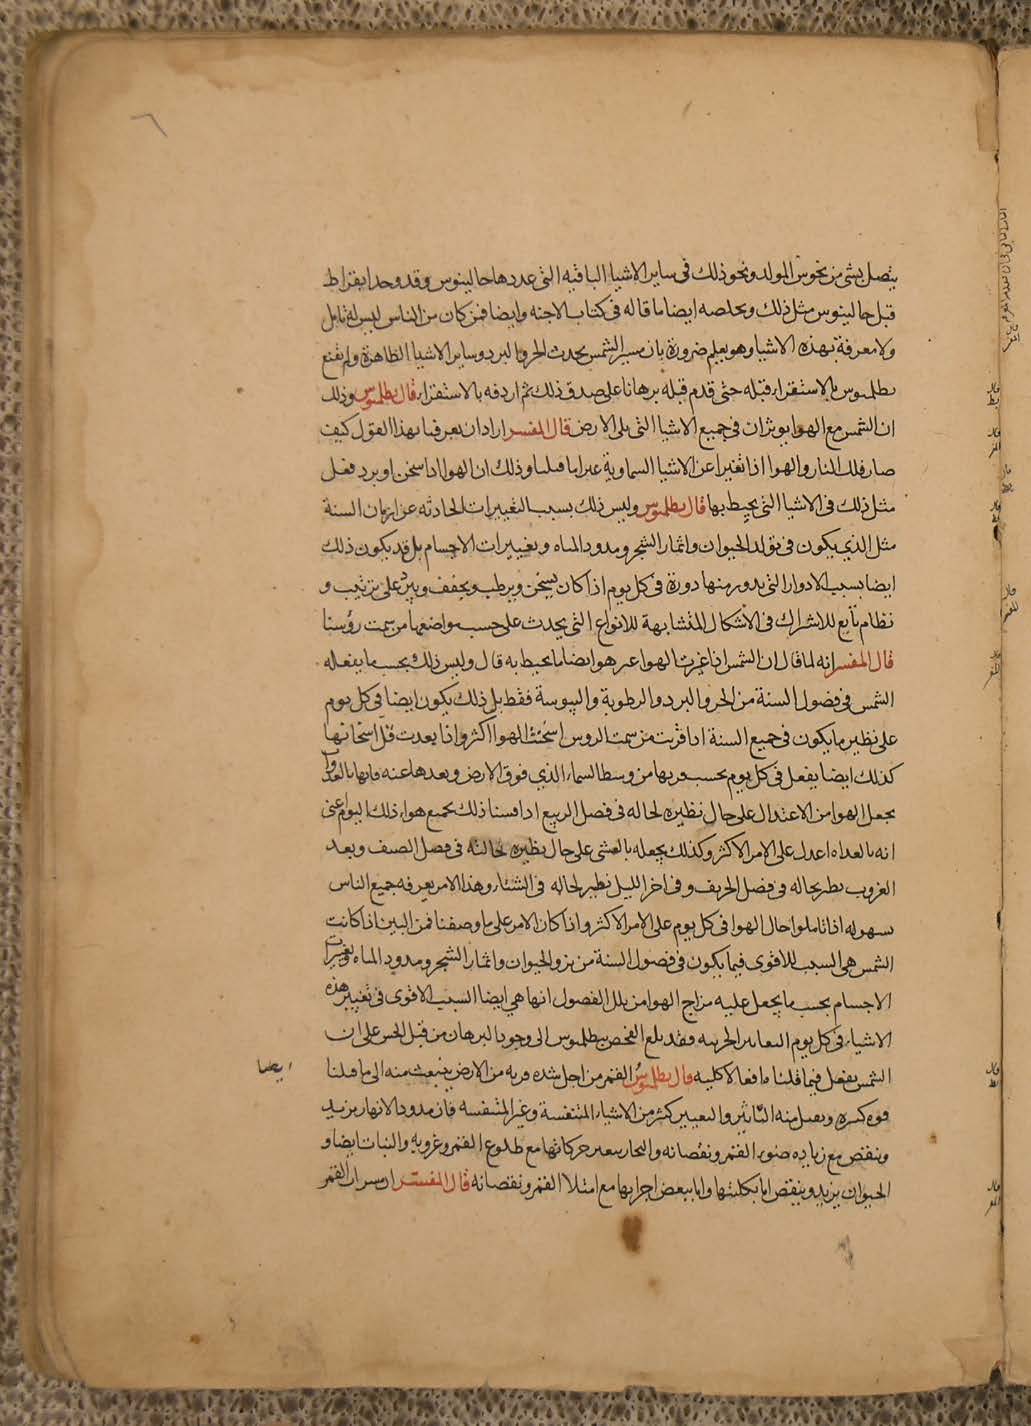 يتصل بشي من نحوس المولد ونحو ذلك في ساير الاشيا الباقيه التي عددها جالينوس وقد وجدا بقراط
قبل جالينوس مثل ذلك ويخلصه ايضا ما قاله في كتاب الاجنه وايضا فمن كان من الناس ليس له
ولا معرفة بهذه الاشيا وهو يعلم ضرورة بان مسير الشمس يحدث الحر والبرد وساير الاشيا الظاهرة ولم يقنع
بطلميوس بالاستقراء قبله حتى قدم قبله برهانا على صدق ذلك ثم اردفه بالاستقراء قال بطلميوس وذلك
ان الشمس مع الهوا يوثران في جميع الاشيا التي يلي الارض قال المفسر اراد ان يعرفنا بهذا القول كيف
صار فلك النار والهوا اذا تغيرا عن الاشيا السماوية غيرا ما قبلنا وذلك ان الهوا اذا سخن او برد فعل
مثل ذلك في الاشيا التي يحيط بها قال بطلميوس وليس ذلك بسبب التغييرات الحادثه عن ازمان السنة
مثل الذي يكون في تولد الحيوان واثمار الشجر ومدود المياه وتغييرات الاجسام بل قد يكون ذلك
ايضا بسبب الادوار التي يدور منها دورة في كل يوم اذا كان يسخن ويرطب ويجفف ويبرد على ترتيب و
نظام تابع للاشراك في الاشكال المتشابهة للانواع التي يحدث على حسب مواضعها من سمت رؤسنا
قال المفسر انه لما قال ان الشمس اذا غيرت الهوا غير هو ايضا ما يحيط به قال وليس ذلك بحسب ما يفعله
الشمس في فصول السنة من الحر والبرد والرطوبة واليبوسة فقط بل ذلك يكون ايضا في كل يوم
على نظير ما يكون في جميع السنة اذا قربت من سمت الروس اسخنت الهوا اكثر واذا بعدت قل اسخانها
كذلك ايضا يفعل في كل يوم بحسب قربها من وسط السماء الذي فوق الارض وبعدها عنه فانها بالغدوا
يجعل الهوا من الاعتدال على حال نظيره لحاله في فصل الربيع اذا قسنا ذلك بجميع هواء ذلك اليوم اعنى
انه بالغداه اعدل على الامر الاكثر وكذلك يجعله بالعشى على حال نظيره لحالته في فصل الصيف وبعد
الغروب نظير لحاله في فصل الخريف وفي اخر الليل نظير لحاله في الشتاء وهذا الامر يعرفه جميع الناس
بسهوله اذا تاملوا حال الهوا في كل يوم على الامر الاكثر واذا كان الامر على ما وصفنا فمن البين اذا كانت
الشمس هي السبب للاقوى فيما يكون في فصول السنة من بزو الحيوان واثمار الشجر ومدود المياه وتغييرات
الاجسام بحسب ما يجعل عليه مزاج الهوا من تلك الفصول انها هي ايضا السبب الاقوى في تغيير هذه
الاشياء في كل يوم التغايير الجزييه فقد بلغ الفحص ببطلميوس الى وجود البرهان من قبل الحس على ان
الشمس يفعل فيما قلناه افعالا كليه قال بطلميوس القمر من اجل شده قربه من الارض ينبعث منه الى ما قبلنا
قوه كبيره ويقبل منه التاثير والتغيير كثير من الاشياء المتنفسة وغير المتنفسه فان مدود الانهار يزيد
وينقص مع زياده ضوء القمر ونقصانه والبحار يتغير حركاتها مع طلوع القمر وغروبه والنبات ايضا و
الحيوان يزيد وينقص اما بكليتها واما ببعض اجزايها مع امتلاء القمر ونقصانه قال المفسر القمر
ايضا